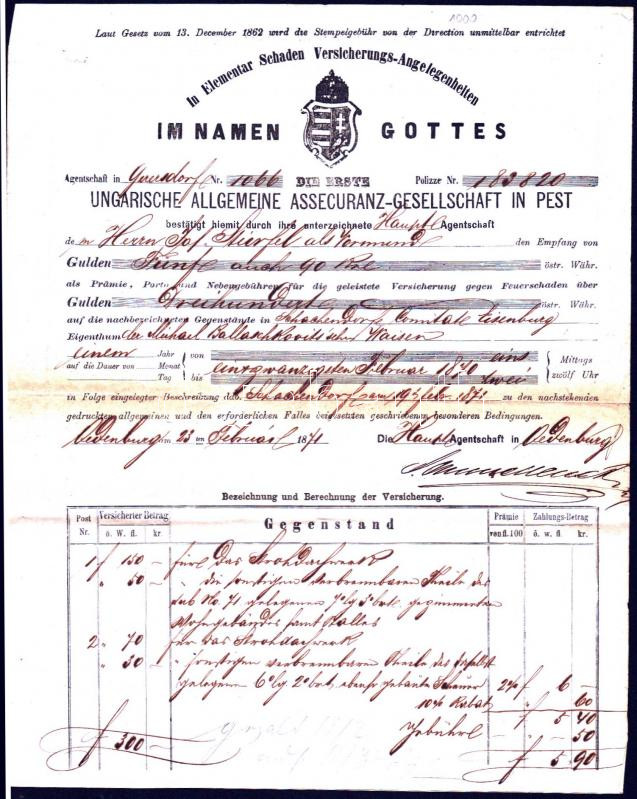 1900
Laut Gesetz vom 13. December 1862 wird die Stempelgebühr von der Direction unmittelbar entrichtet
In Elementar Schaden Versicherungs-Angelegenheiten
IM NAMEN GOTTES
Agentschaft in Nr. 1066 DIE ERSTE Polizze Nr. 183820
UNGARISCHE ALLGEMEINE ASSECURANZ-GESELLSCHAFT IN PEST
bestätigt hiemit durch ihre unterzeichnete Haupt Agentschaft
de m Herrn Jos. als Vormund den Empfang von
Gulden Fünf auch 90 östr. Währ.
als Prämie, Porto und Nebengebühren für die geleistete Versicherung gegen Feuerschaden über
Gulden Dreihundert östr. Währ.
auf die nachbezeichneten Gegenstände in Schachendorf, Comitate Eisenburg
Eigenthum der Michael Waisen
einem Jahr von Mittags
auf die Dauer von Monat Februar 1870 eins
Tag bis zwei zwölf Uhr
in Folge eingelegter Beschreibung dat. Schachendorf am 19 Febr. 1871 zu den nachstehenden
gedruckten allgemeinen und den erforderlichen Falles beigesetzten geschriebenen besonderen Bedingungen.
Oedenburg am 23 ten Februar 1871 Die Haupt Agentschaft in Oedenburg
Bezeichnung und Berechnung der Versicherung.
Post Nr. Versicherter Betrag ö. W. fl. kr. Gegenstand Prämie von fl. 100 Zahlungs-Betrag ö. w. fl. kr.
1 f 150 — für das Strohdachwerk
" 50 — " die sonstigen verbrennbaren Theile des
sub No. 71 gelegenen 7° lg 3° brt. gezimmerten
Wohngebäudes samt Stalles
2 " 70 — für das Strohdachwerk
" 30 — " sonstigen verbrennbaren Theile des daselbst
gelegenen 6° lg. 2° brt. ebenso gebaute Scheuer 2% f 6 —
10% Rabat " — 60
f 5 40
Gebühr " — 50
f 300 — f 5 90